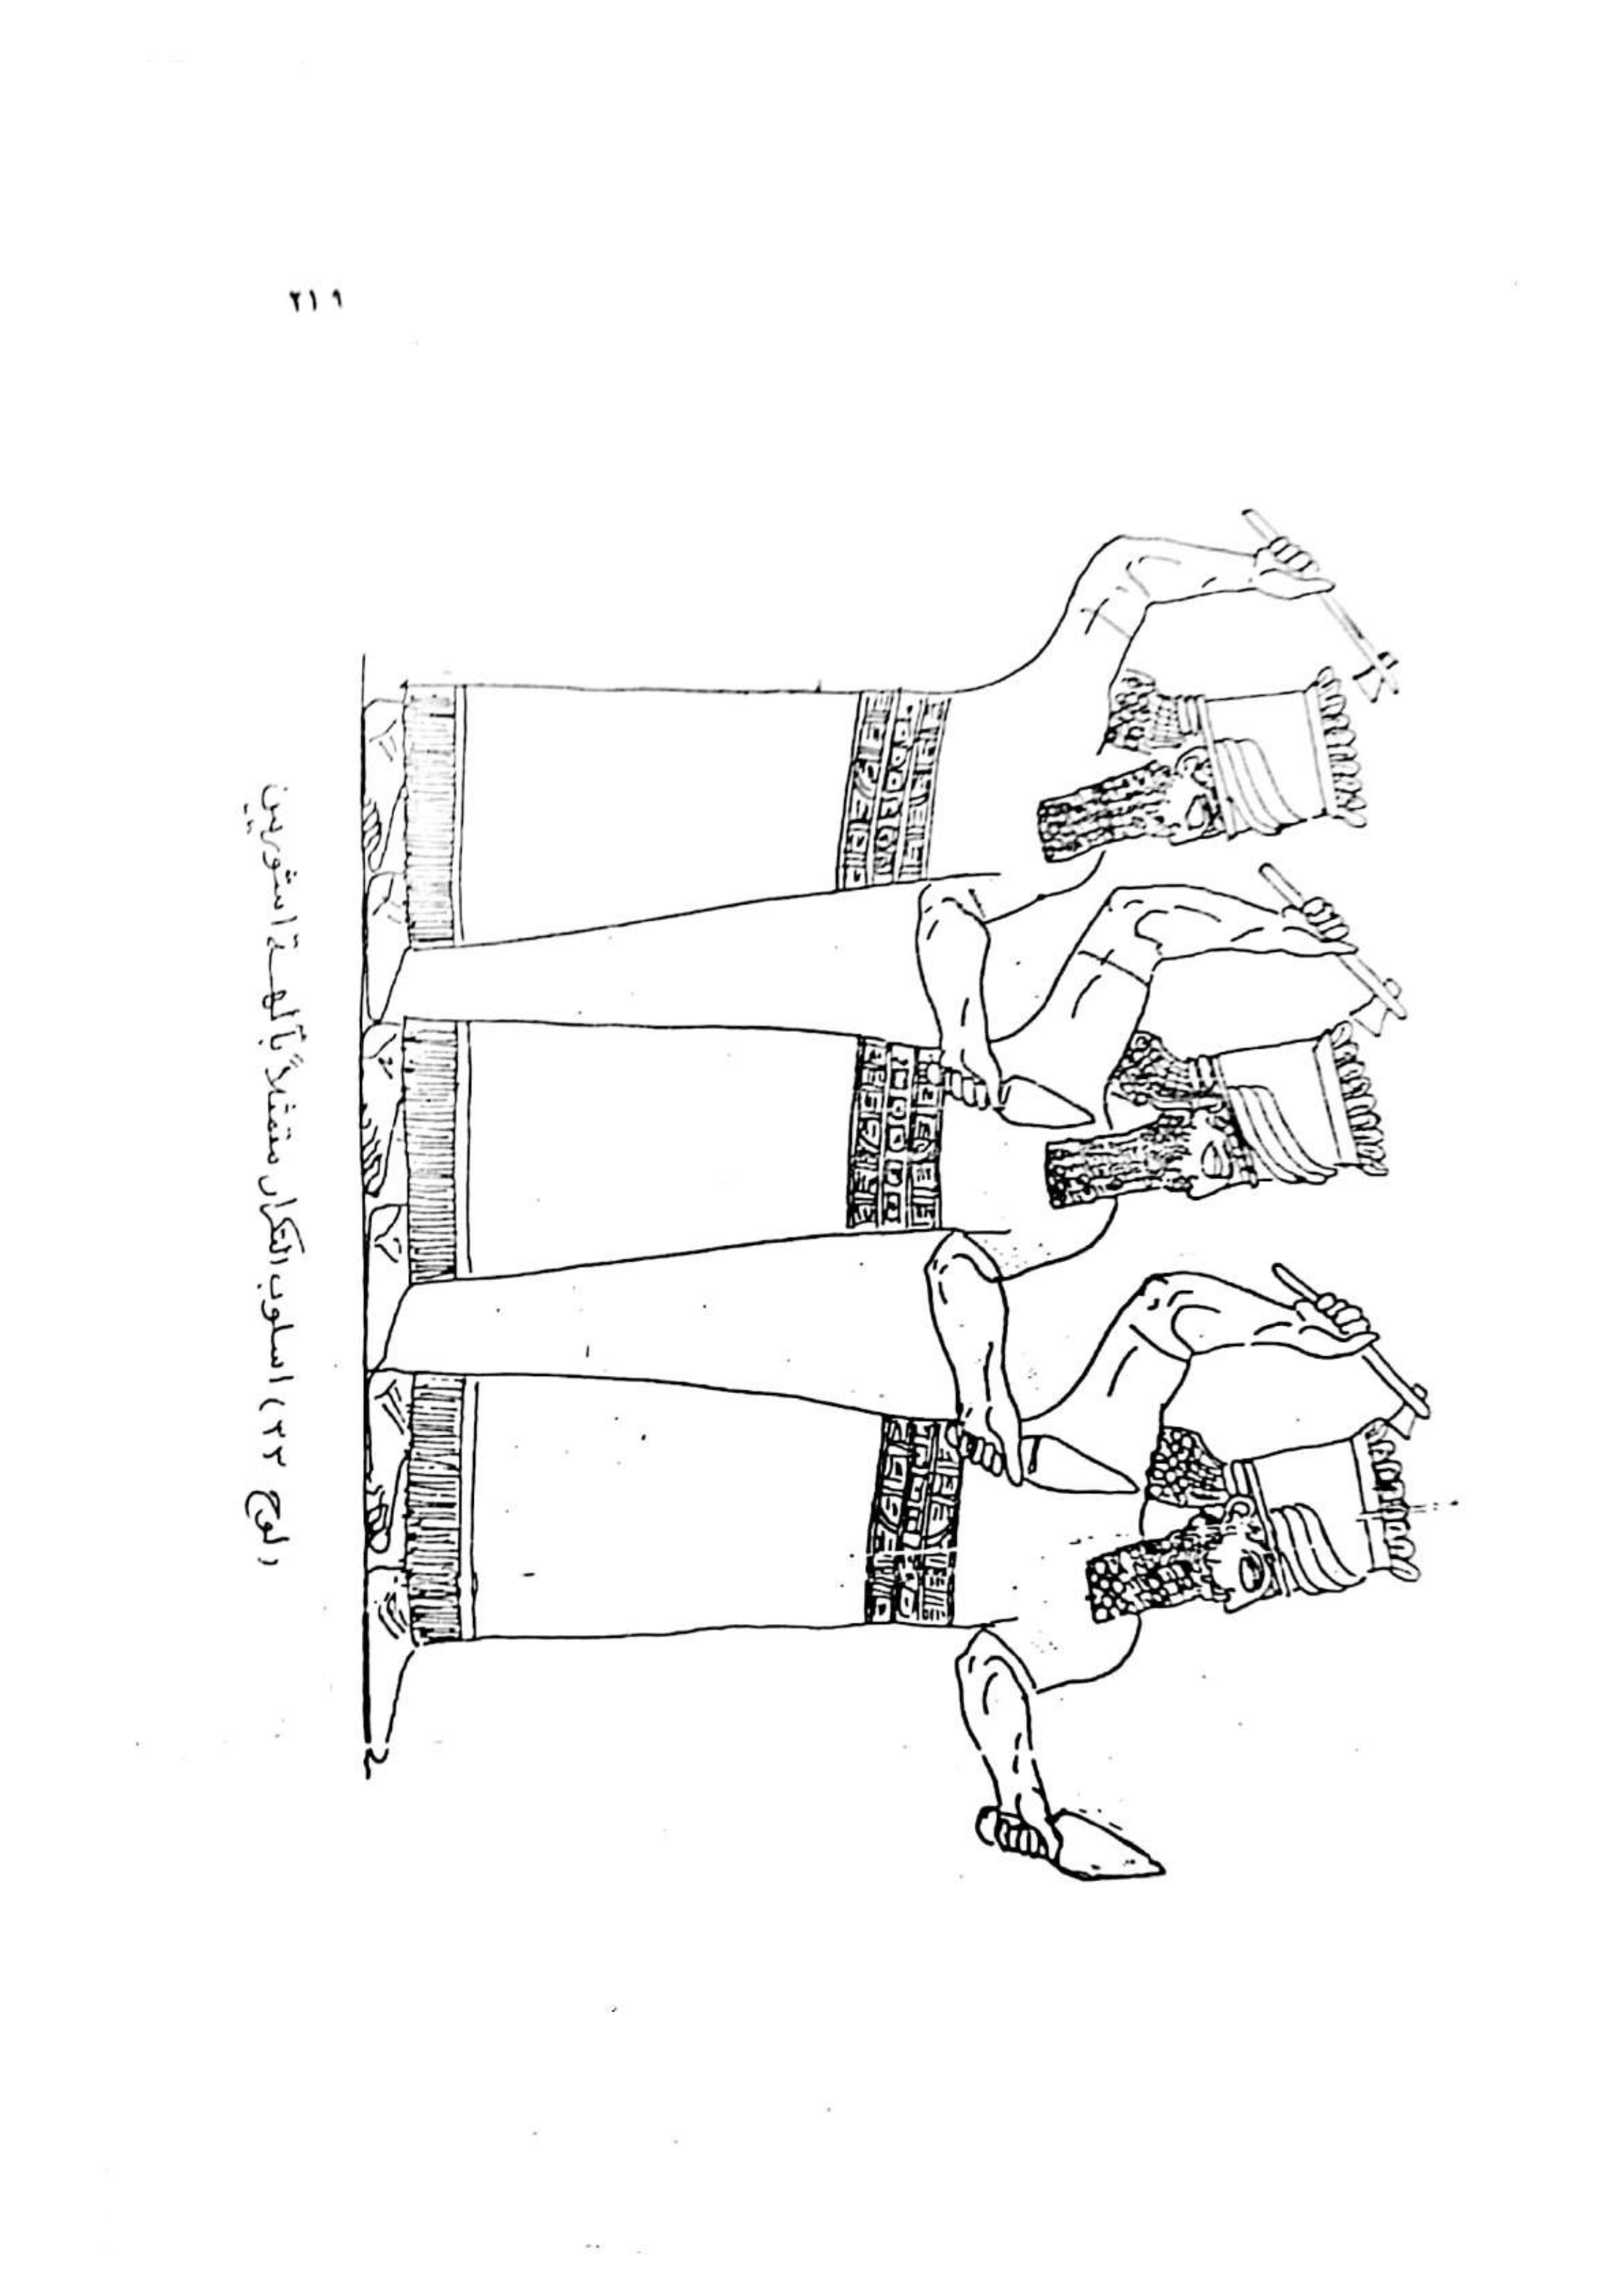 ٢١٩
(لوح ٢٢) اسلوب التكرار متمثلاً بآلهـة اشوريين